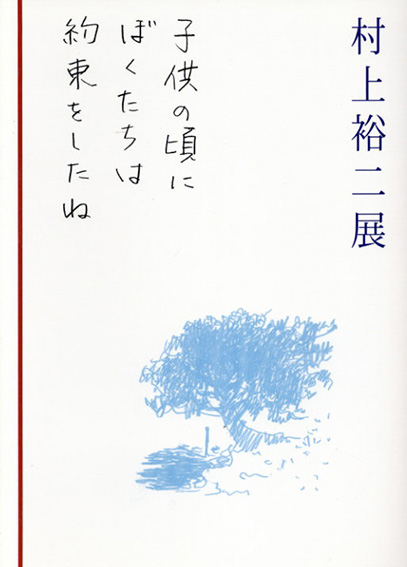 村上裕二展
子供の頃に
ぼくたちは
約束をしたね